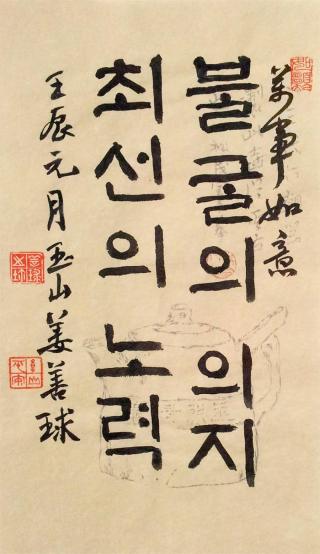 萬事如意
불굴의 의지
최선의 노력
壬辰元月玉山姜善球